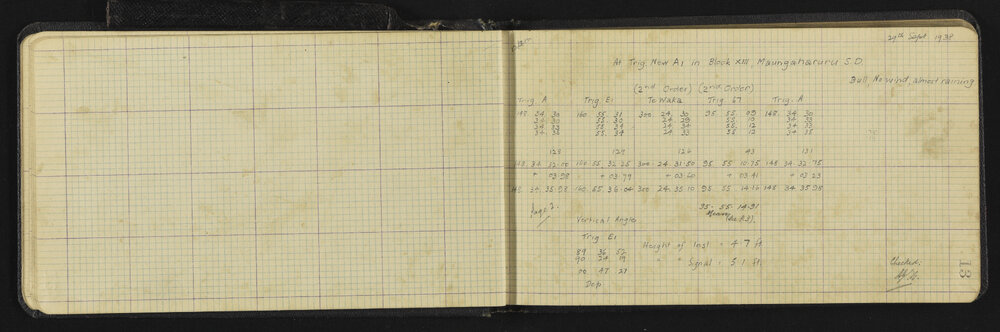 29th Sept 1938
At Trig. New A1 in Block XIII, Maungaharuru S.D.
Dull, No wind, almost raining
(2nd Order) (2nd Order)
Trig. A Trig. E1 Te Waka Trig. 67 Trig. A
148 34 30 160 55 31 300 24 30 95 55 09 148 34 30
34 30 55 30 24 29 55 10 34 33
34 34 55 34 24 34 55 12 34 33
34 35 55 34 24 33 55 12 34 35
128 129 126 43 131
148 34 32.00 160 55 32.25 300 24 31.50 95 55 10.75 148 34 32.75
+ 03.98 + 03.79 + 03.60 + 03.41 + 03.23
148 34 35.98 160 55 36.04 300 24 35.10 95 55 14.16 148 34 35.98
Page 2.
95 - 55 - 14.91
Mean
(See P.3).
Vertical Angle
Trig E1
89 36 52
90 24 19
00 47 27
Dep
Height of Inst = 4.7 ft
" " Signal = 5.1 ft.
Checked:
13